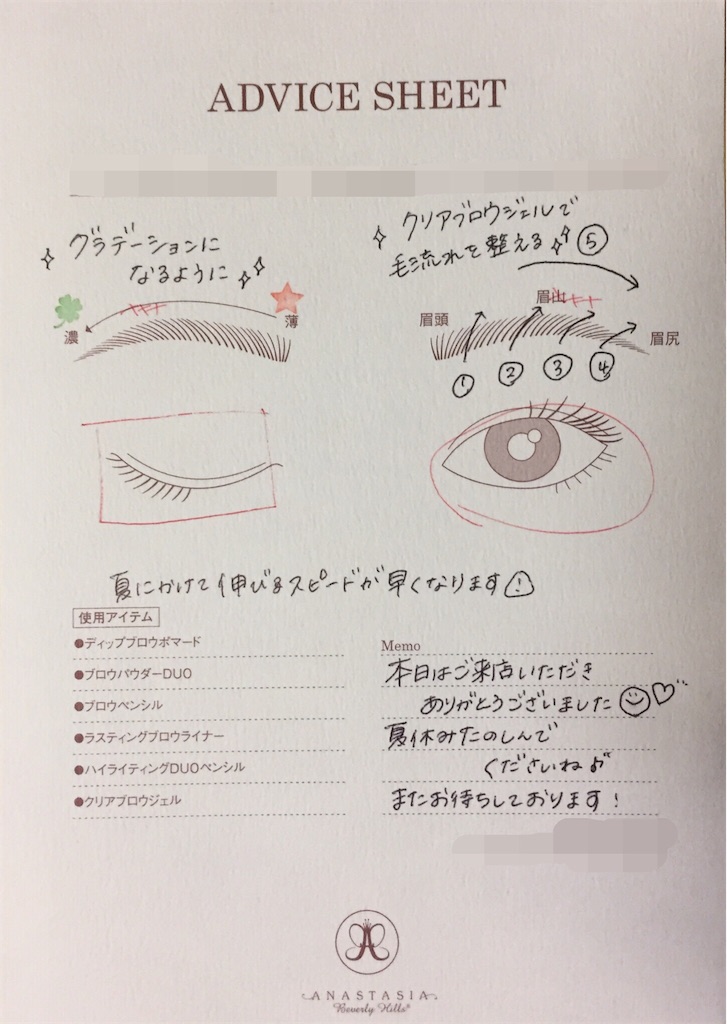 ADVICE SHEET
グラデーションに
なるように
濃
薄
クリアブロウジェルで
毛流れを整える ⑤
眉頭
眉山
眉尻
① ② ③ ④
夏にかけて伸びるスピードが早くなります!
使用アイテム
●ディップブロウポマード
●ブロウパウダーDUO
●ブロウペンシル
●ラスティングブロウライナー
●ハイライティングDUOペンシル
●クリアブロウジェル
Memo
本日はご来店いただき
ありがとうございました
夏休みたのしんで
くださいね♪
またお待ちしております!
ANASTASIA
Beverly Hills®